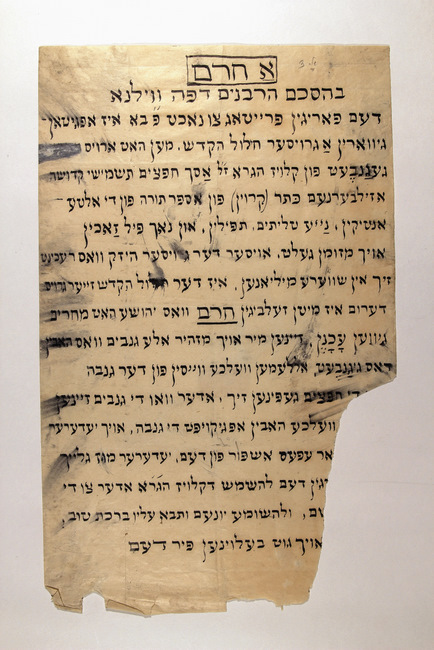 א חרם
בהסכם הרבנים דפה ווילנא
דעם פאריגין פרייטאג צו נאכט פ בא איז אפגיטאן
גיווארין אַ גרויסער חילול הקדש. מען האט ארויס
גיגנבעט פון קלויז הגרא ז״ל אַסך חפצים תשמישי קדושה
אזילבערנעם כתר (קרוין) פון אספר תורה פון די אלטע
אנטיקין, נייע טליתים, תפילין, און נאך פיל זאַכין
אויך מזומן געלט, אויסער דער גרויסער היזק וואס רעכינט
זיך אין שווערע מיליאנען, איז דער חלול הקדש זייער גרויס
דערום איז מיטן זעלביגין חרם וואס יהושע האט מחרים
גיווען עָכָנֶין, זיינען מיר אויך מזהיר אלע גנבים וואס האבין
דאס גיגנבעט, אללעמען וועלכע ווייסין פון דער גנבה
די חפצים געפינען זיך, אדער וואו די גנבים זיינען
וועלכע האבין אפגיקויפט די גנבה, אויך יעדערער
אר עפעס אשפור פון דעם, יעדערער מוז גלייך
יגין דעם להשמש דקלויז הגרא אדער צו די
ום, ולהשומע יונעם ותבא עליו ברכת טוב,
אויך גוט בעלוינען פיר דעם